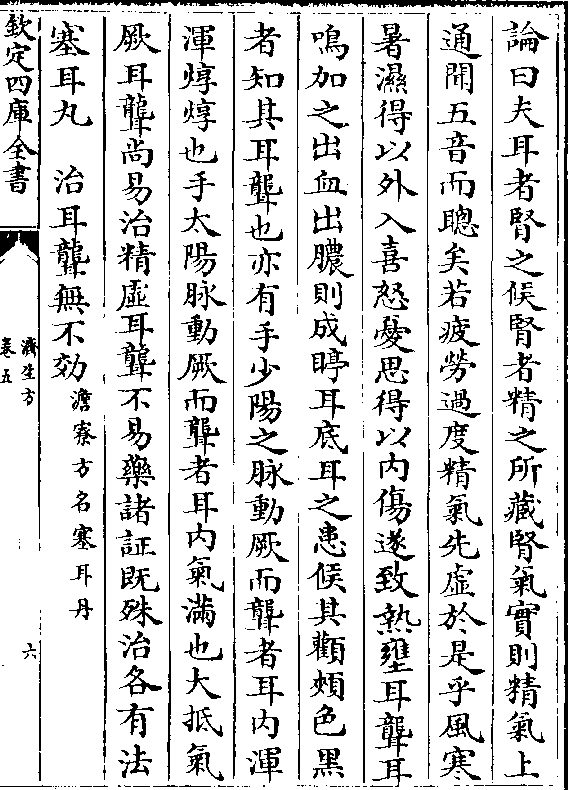 論曰夫耳者腎之候腎者精之所藏腎氣實則精氣上
通聞五音而聰矣若疲勞過度精氣先虛於是乎風寒
暑濕得以外入喜怒憂思得以内傷遂致熱壅耳聾耳
鳴加之出血出膿則成聤耳底耳之患候其顴頰色黑
者知其耳聾也亦有手少陽之脉動厥而聾者耳内渾
渾焞焞也手太陽脉動厥而聾者耳内氣滿也大抵氣
厥耳聾尚易治精虛耳聾不易藥諸証既殊治各有法
塞耳丸　治耳聾無不効澹寮方名塞耳丹
欽定四庫全書
濟生方
卷五
六